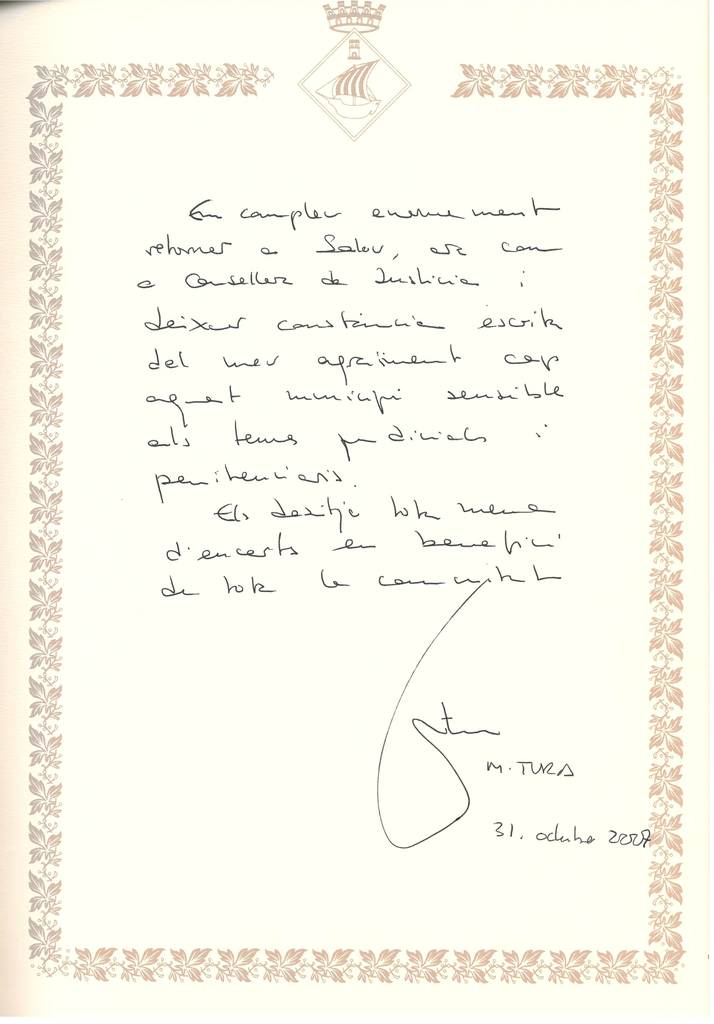 Em complau enormement
retornar a Salou, ara com
a Consellera de Justícia i
deixar constància escrita
del meu agraïment cap
aquest municipi sensible
als temes judicials i
penitenciaris.
Els desitjo tota mena
d'encerts en benefici
de tota la comunitat
M. TURA
31. octubre 2007